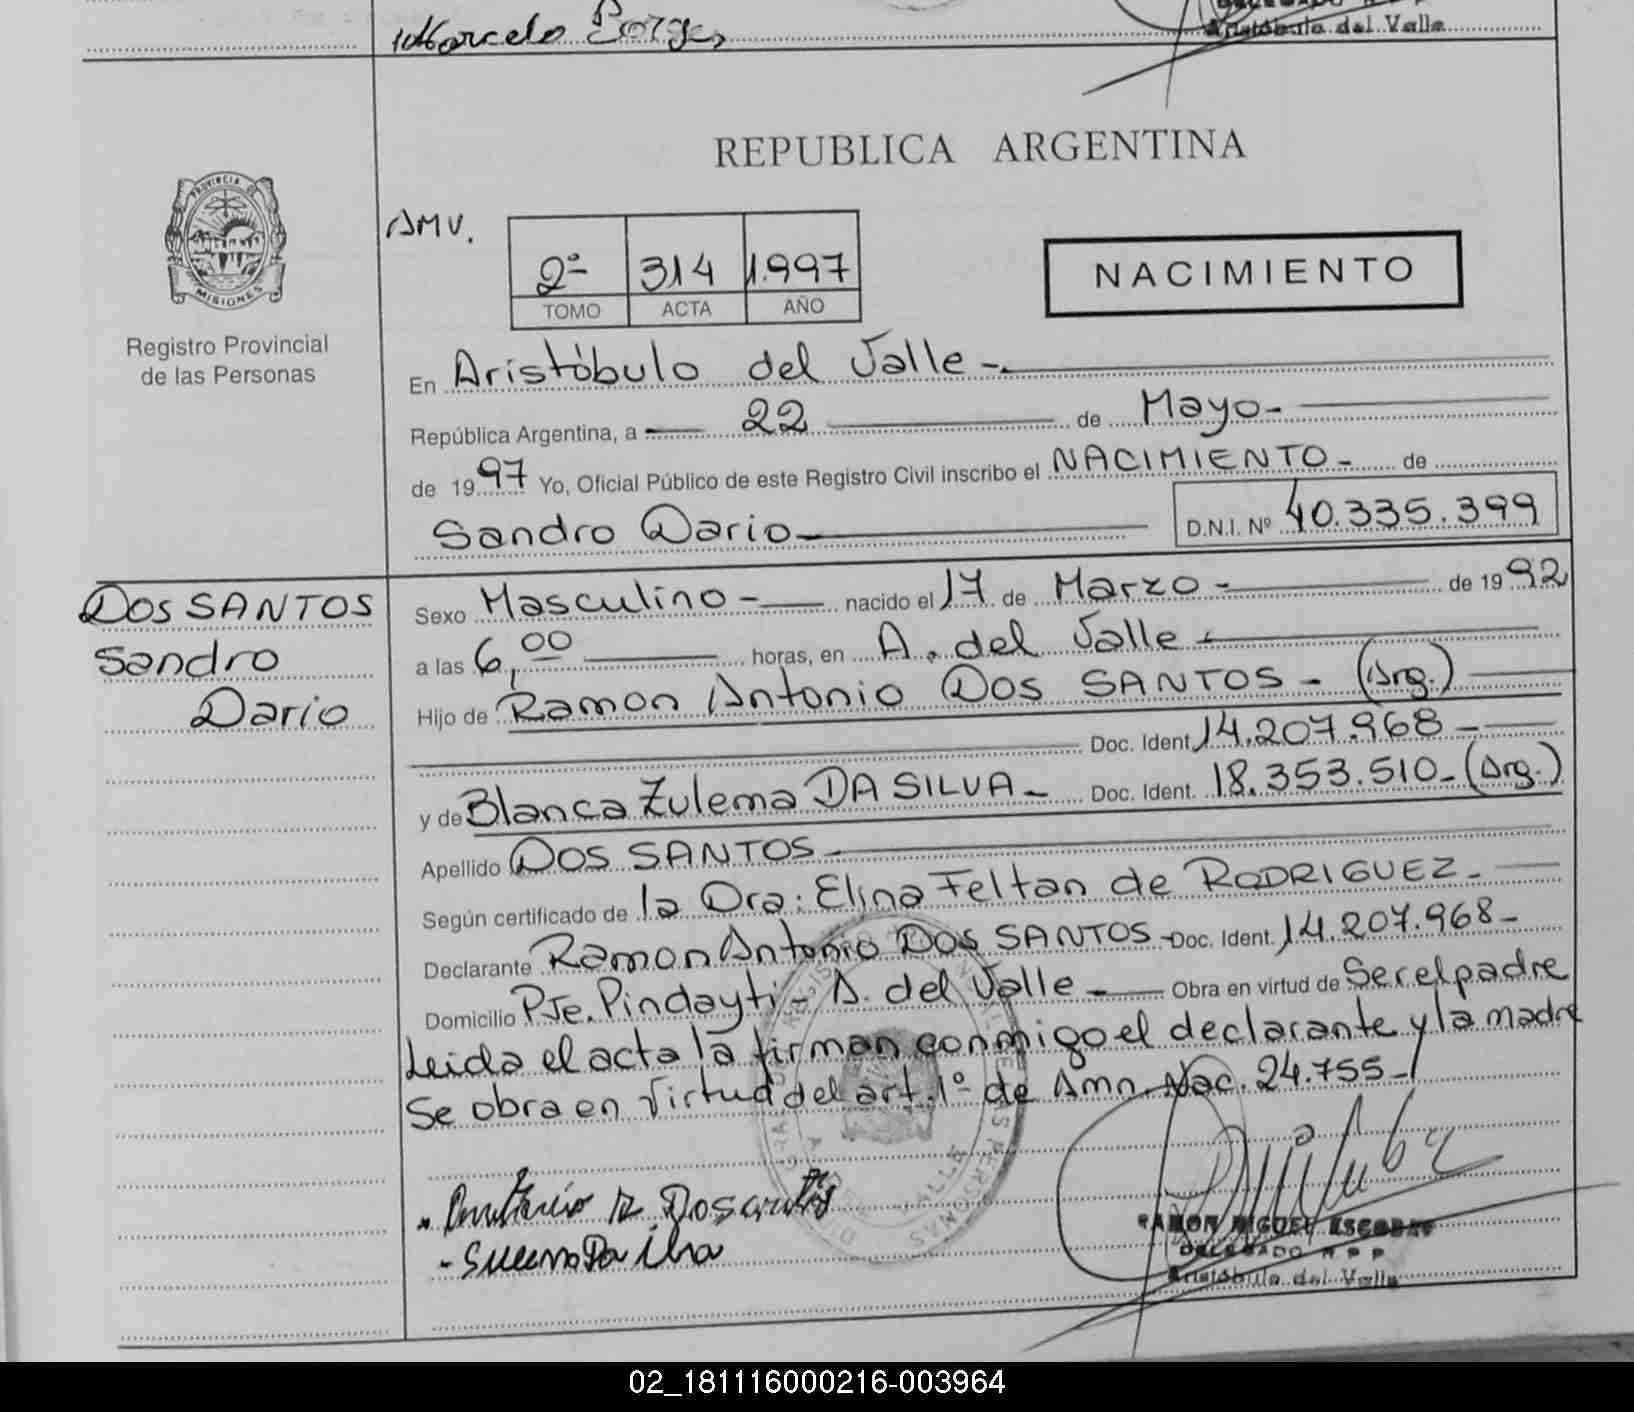 Marcelo Borges
Aristóbulo del Valle
REPUBLICA ARGENTINA
PROVINCIA DE
MISIONES
Registro Provincial
de las Personas
AMV.
2º 314 1.997
TOMO ACTA AÑO
NACIMIENTO
En Aristóbulo del Valle -.
República Argentina, a 22 de Mayo-
de 1997 Yo, Oficial Público de este Registro Civil inscribo el NACIMIENTO - de
Sandro Dario D.N.I. Nº 40.335.399
DOS SANTOS
Sandro
Dario
Sexo Masculino - nacido el 17 de Marzo - de 1992
a las 6,00 horas, en A. del Valle -
Hijo de Ramon Antonio DOS SANTOS - (Arg.)
Doc. Ident. 14.207.968 -
y de Blanca Zulema DA SILVA - Doc. Ident. 18.353.510 - (Arg.)
Apellido DOS SANTOS -
Según certificado de la Dra: Elina Feltan de RODRIGUEZ -
Declarante Ramon Antonio DOS SANTOS - Doc. Ident. 14.207.968 -
Domicilio PJe. Pindayti - A. del Valle - Obra en virtud de Ser el padre
Leida el acta la firman conmigo el declarante y la madre
Se obra en virtud del art. 1º de Amn. Nac. 24.755 -
RAMON MIGUEL ESCOBAR
DELEGADO R P P
Aristóbulo del Valle
02_181116000216-003964